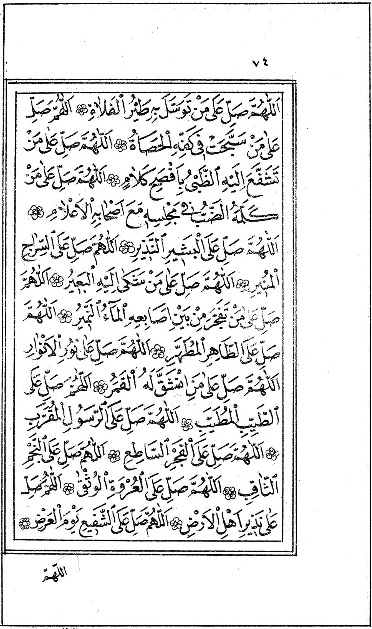 ٧٤
اَللّٰهُمَّ صَلِّ عَلٰى مَنْ تَوَسَّلَ بِهِ طَيْرُ الْفَلَاةِ ۞ اَللّٰهُمَّ صَلِّ
عَلٰى مَنْ سَبَّحَتْ فِى كَفِّهِ الْحَصَاةُ ۞ اَللّٰهُمَّ صَلِّ عَلٰى مَنْ
تَشَفَّعَ اِلَيْهِ الظَّبْىُ بِاَفْصَحِ كَلَامٍ ۞ اَللّٰهُمَّ صَلِّ عَلٰى مَنْ
كَلَّمَهُ الضَّبُّ فِى مَجْلِسِهِ مَعَ اَصْحَابِهِ الْاَعْلَامِ ۞
اَللّٰهُمَّ صَلِّ عَلَى الْبَشِيرِ النَّذِيرِ ۞ اَللّٰهُمَّ صَلِّ عَلَى السِّرَاجِ
الْمُنِيرِ ۞ اَللّٰهُمَّ صَلِّ عَلٰى مَنْ شَكٰى اِلَيْهِ الْبَعِيرُ ۞ اَللّٰهُمَّ
صَلِّ عَلٰى مَنْ تَفَجَّرَ مِنْ بَيْنِ اَصَابِعِهِ الْمَاءُ النَّمِيرُ ۞ اَللّٰهُمَّ
صَلِّ عَلَى الطَّاهِرِ الْمُطَهَّرِ ۞ اَللّٰهُمَّ صَلِّ عَلٰى نُورِ الْاَنْوَارِ
اَللّٰهُمَّ صَلِّ عَلٰى مَنِ انْشَقَّ لَهُ الْقَمَرُ ۞ اَللّٰهُمَّ صَلِّ عَلَى
الطَّيِّبِ الْمُطَيَّبِ ۞ اَللّٰهُمَّ صَلِّ عَلَى الرَّسُولِ الْمُقَرَّبِ
۞ اَللّٰهُمَّ صَلِّ عَلَى الْفَجْرِ السَّاطِعِ ۞ اَللّٰهُمَّ صَلِّ عَلَى النَّجْمِ
الثَّاقِبِ ۞ اَللّٰهُمَّ صَلِّ عَلَى الْعُرْوَةِ الْوُثْقٰى ۞ اَللّٰهُمَّ صَلِّ
عَلٰى نَذِيرِ اَهْلِ الْاَرْضِ ۞ اَللّٰهُمَّ صَلِّ عَلَى الشَّفِيعِ يَوْمَ الْعَرْضِ ۞
اللّٰهُمَّ